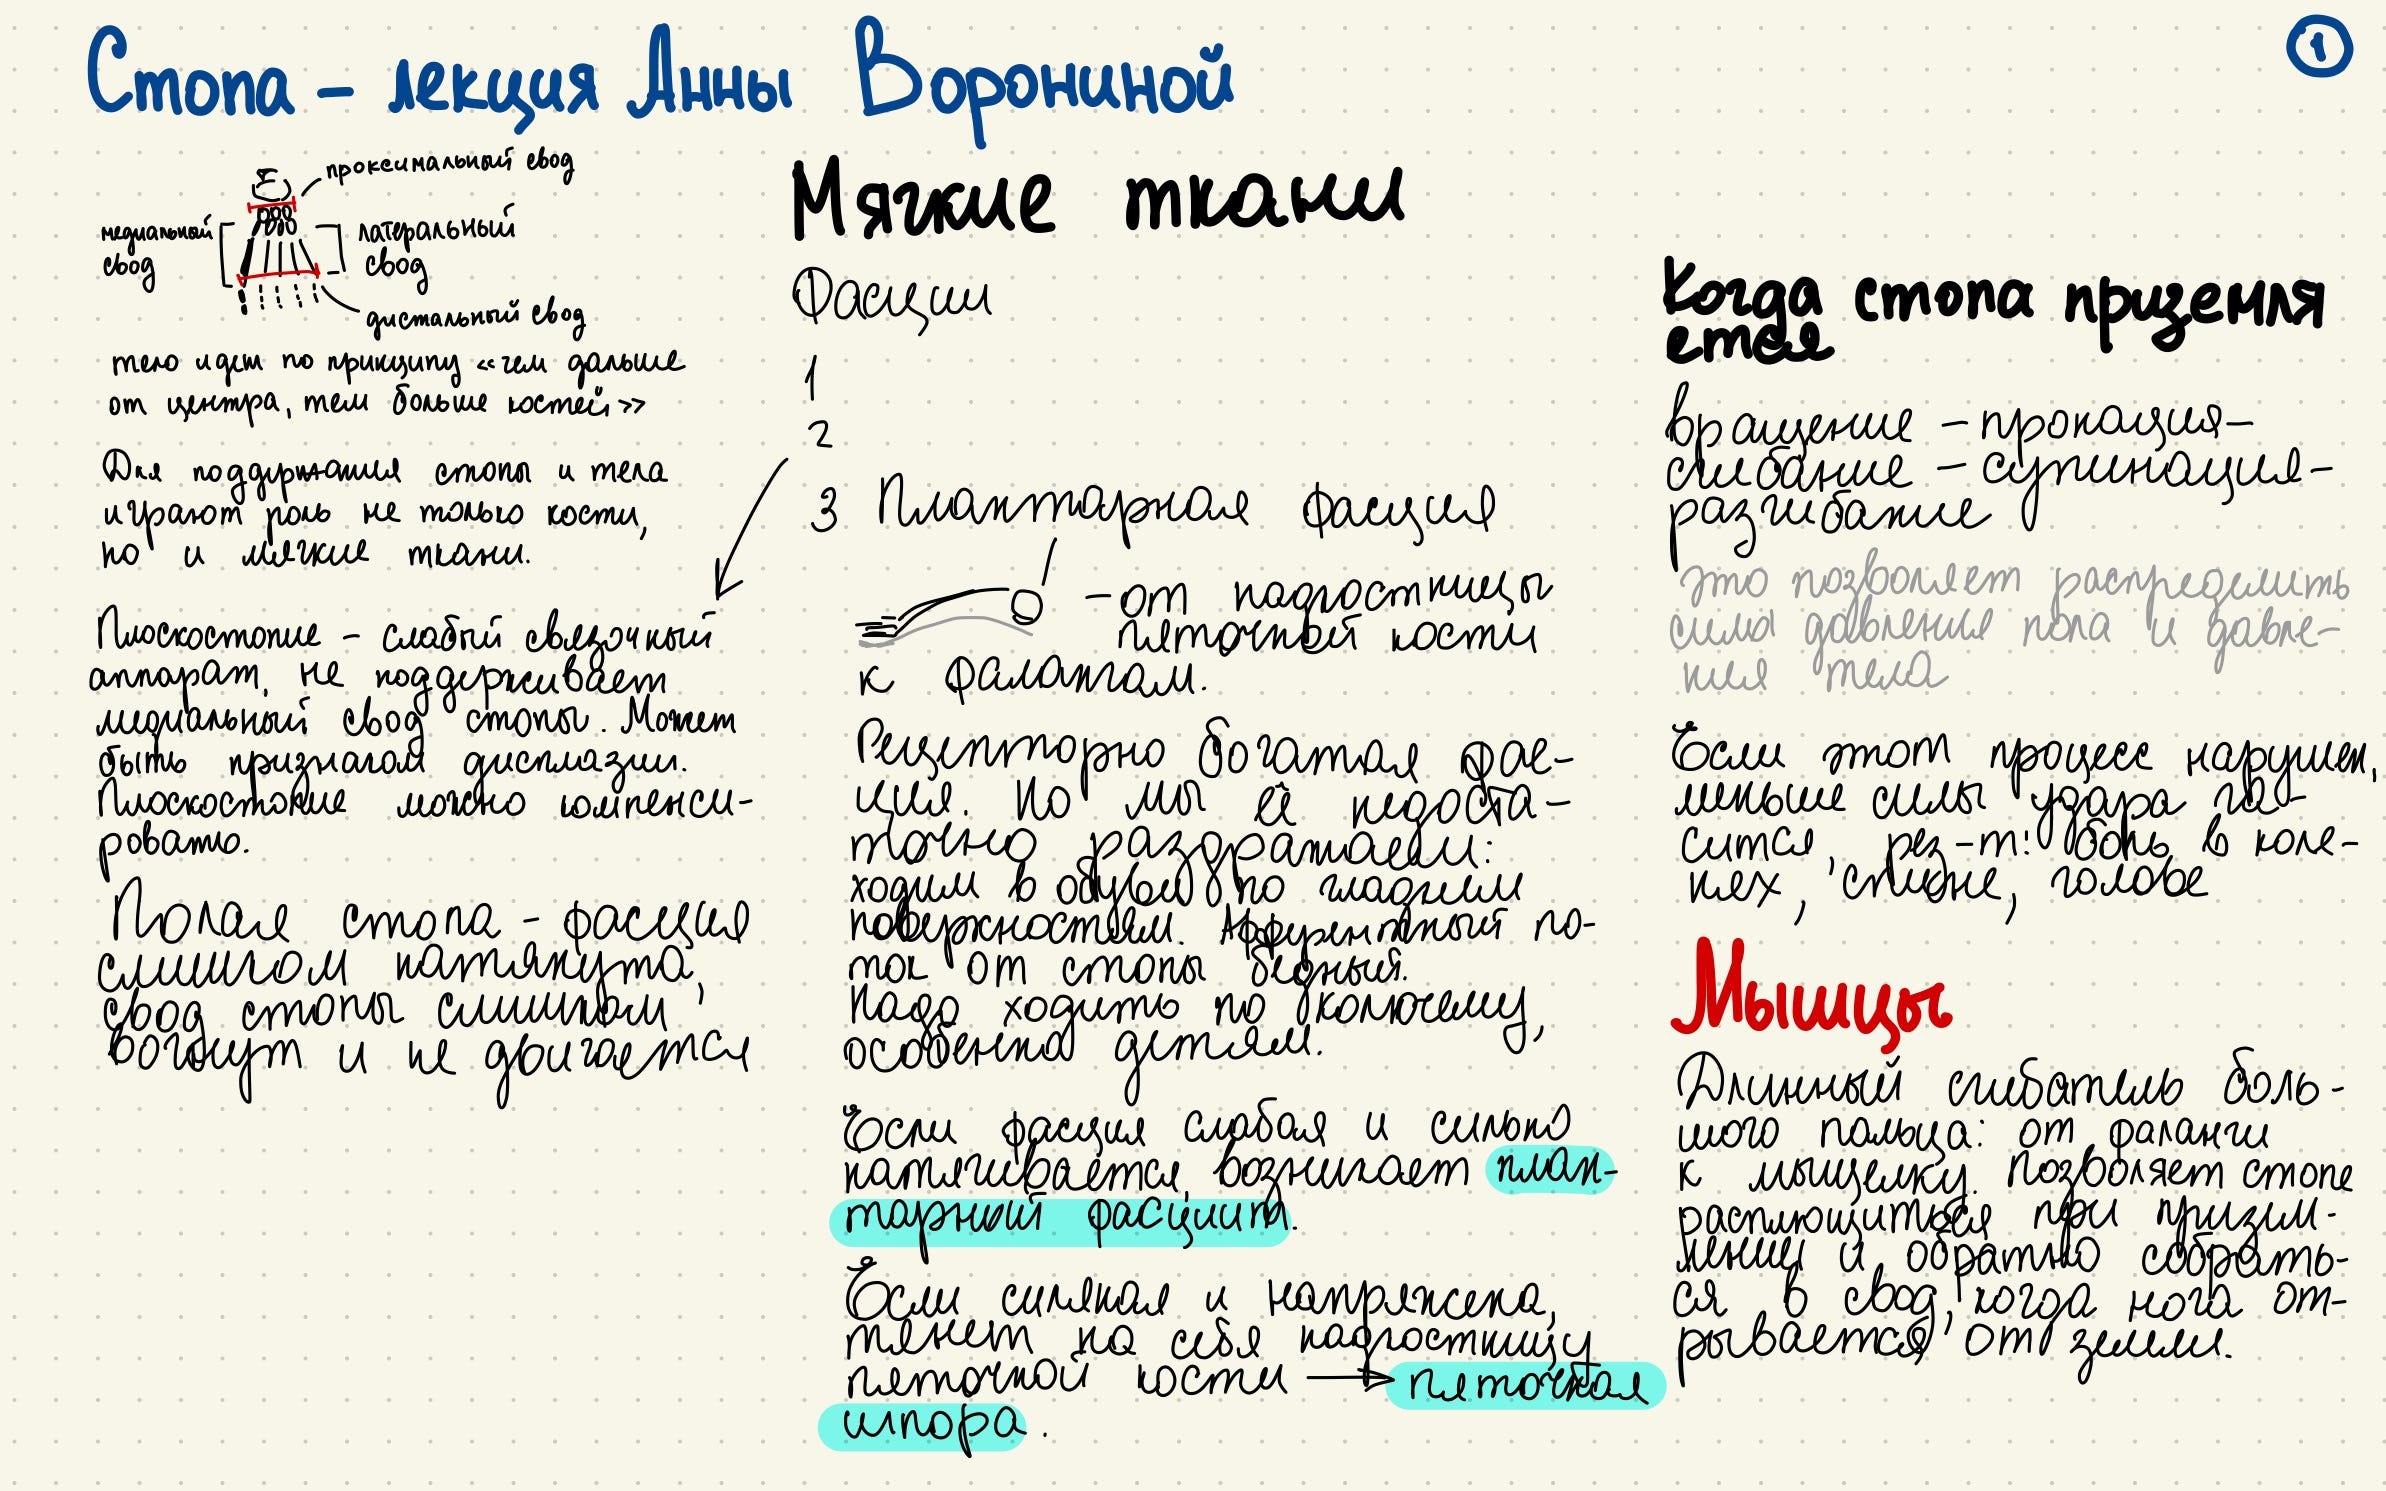 Стопа – лекция Анны Ворониной
1
проксимальный свод
медиальный
свод
латеральный
свод
дистальный свод
тело идет по принципу «чем дальше
от центра, тем больше костей»
Для поддержания стопы и тела
играют роль не только кости,
но и мягкие ткани.
Плоскостопие – слабый связочный
аппарат, не поддерживает
медиальный свод стопы. Может
быть признаком дисплазии.
Плоскостопие можно компенси-
ровать.
Полая стопа – фасция
слишком натянута,
свод стопы слишком
вогнут и не двигается
Мягкие ткани
Фасции
1
2
3 Плантарная фасция
– от надгостницы
пяточной кости
к фалангам.
Рецепторно богатая фас-
ция. Но мы её недоста-
точно раздражаем:
ходим в обуви по гладким
поверхностям. Афферентный по-
ток от стопы бедный.
Надо ходить по колючему,
особенно детям.
Если фасция слабая и сильно
натягивается, возникает план-
тарный фасциит.
Если сильная и напряжена,
тянет на себя надгостницу
пяточной кости → пяточная
шпора.
Когда стопа приземля
ется
вращение – пронация –
сгибание – супинация –
разгибание
это позволяет распределить
силы давления пола и давле-
ния тела
Если этот процесс нарушен,
меньше силы удара га-
сится, рез-т: боль в коле-
нях, спине, голове
Мышцы
Длинный сгибатель боль-
шого пальца: от фаланги
к мыщелку. Позволяет стопе
расплющиться при призем-
лении и обратно собрать-
ся в свод, когда нога от-
рывается от земли.